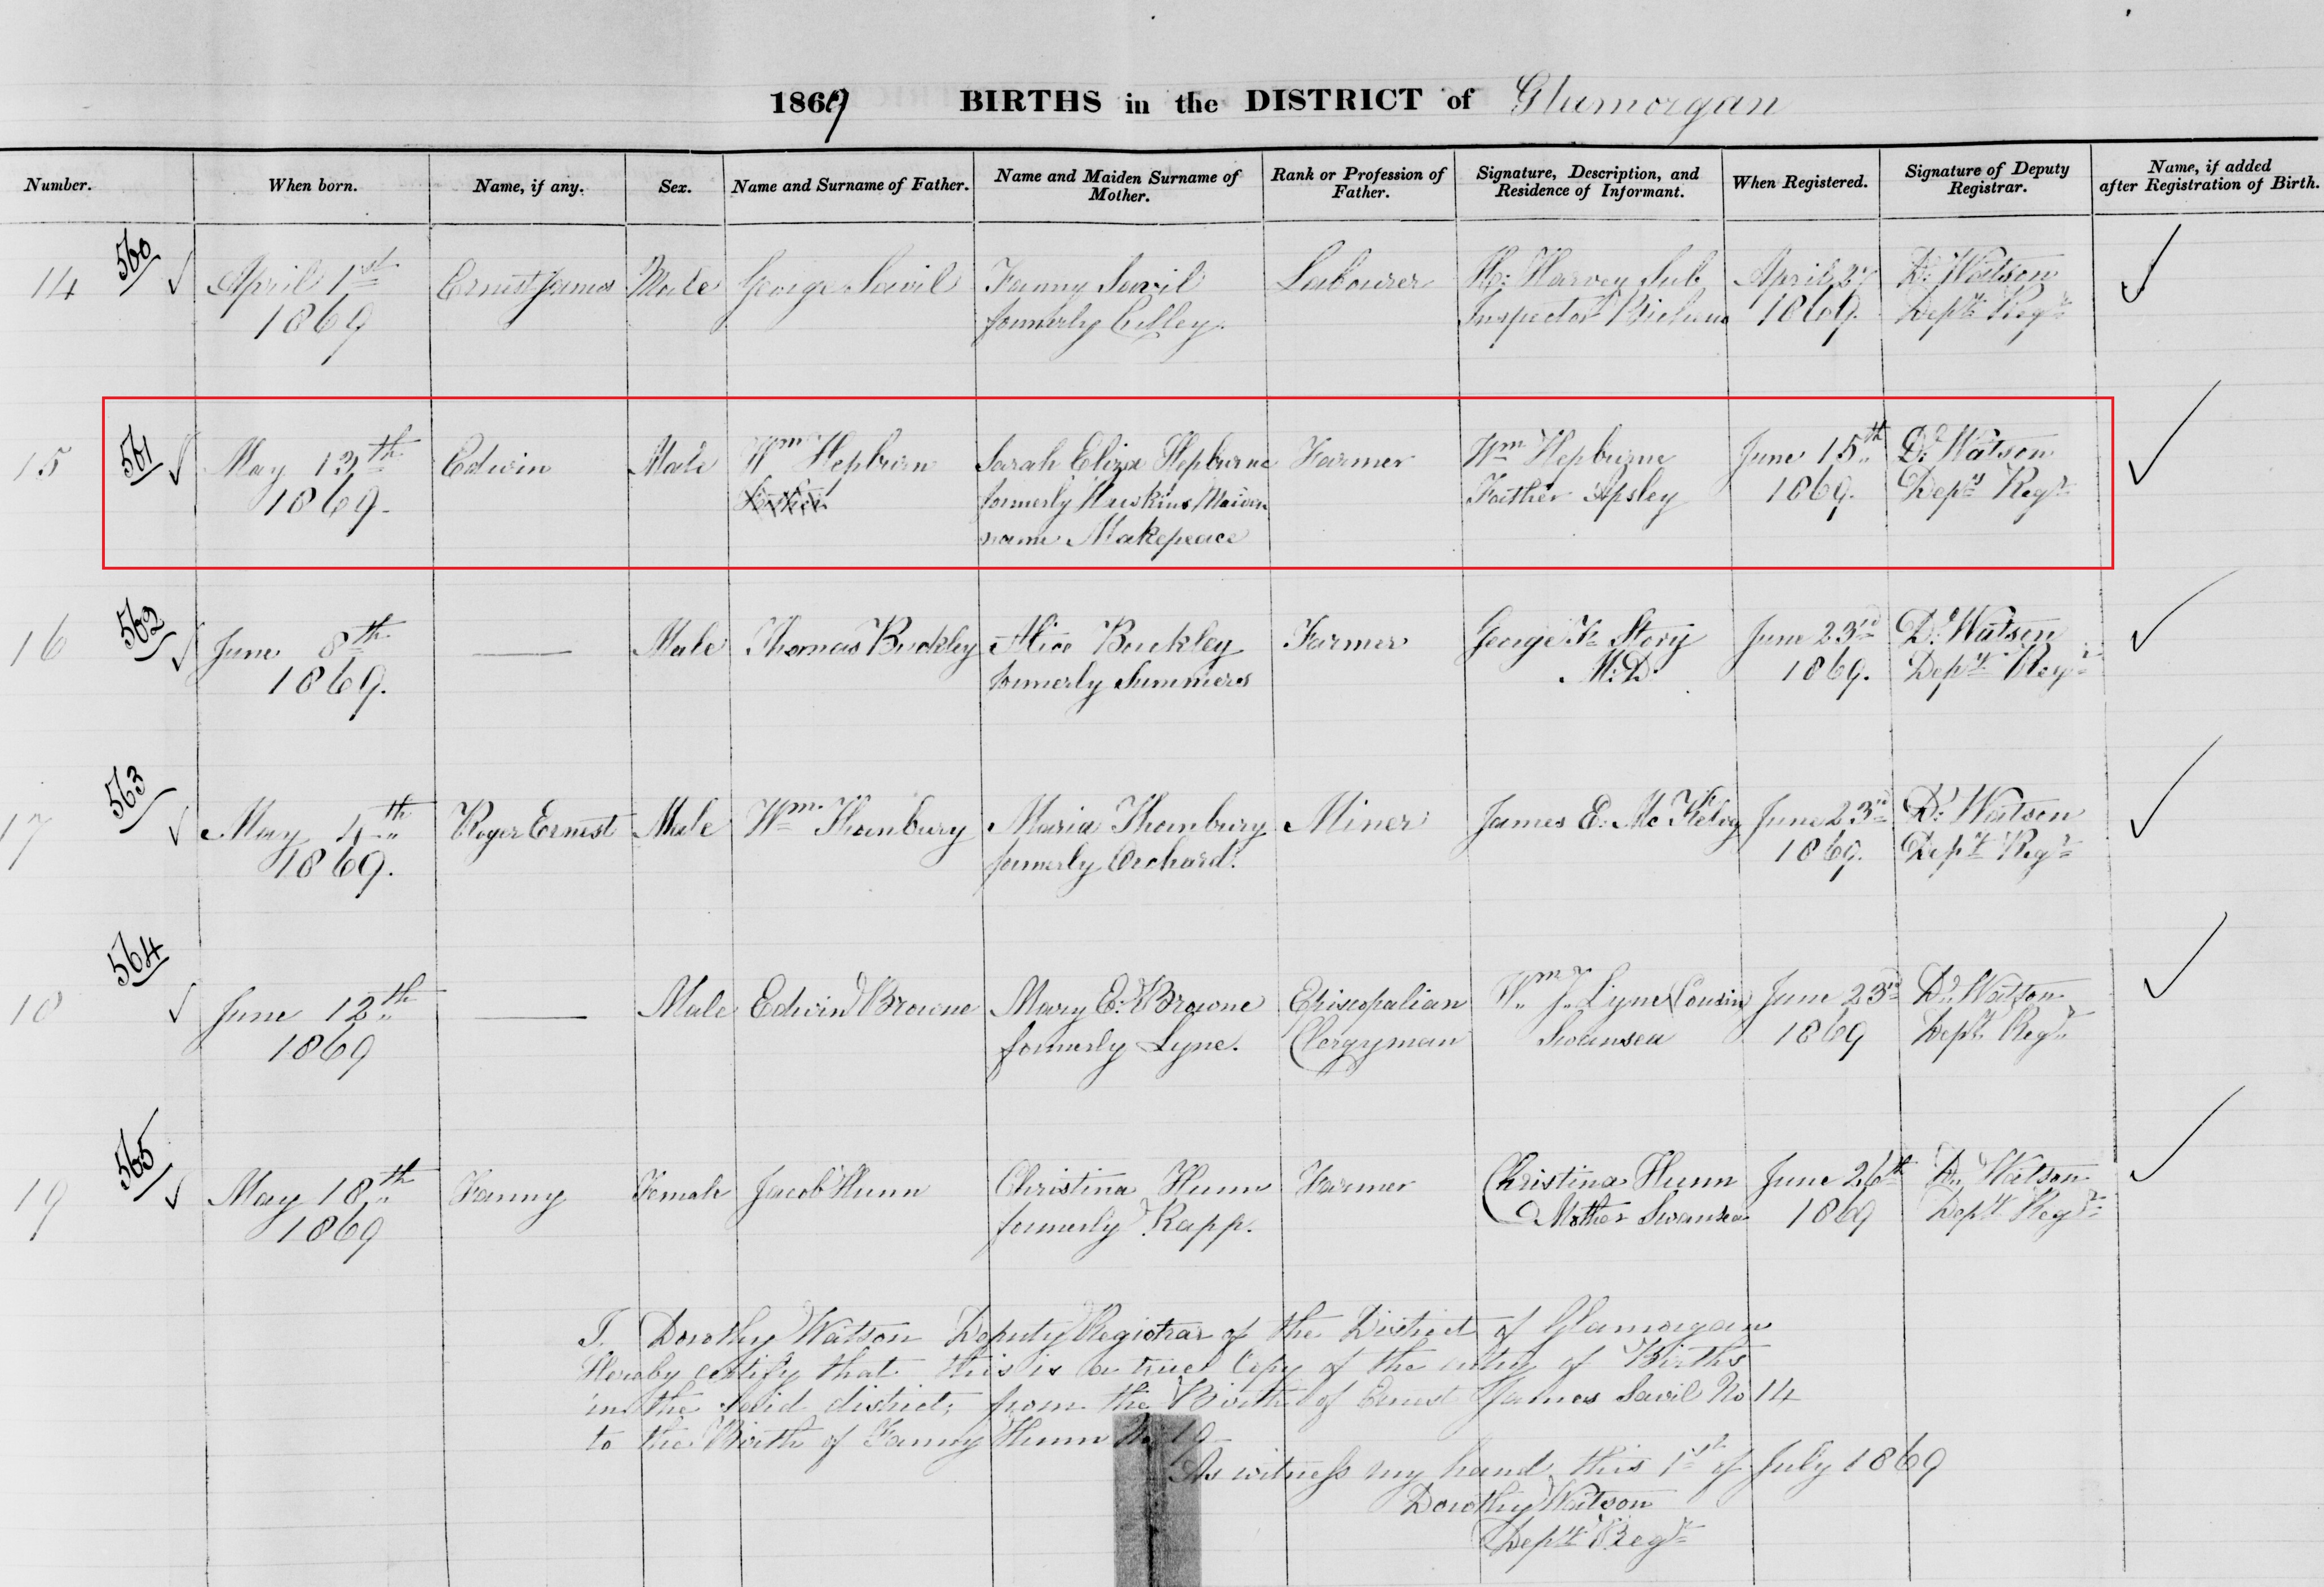 1869 BIRTHS in the DISTRICT of Glamorgan
Number. When born. Name, if any. Sex. Name and Surname of Father. Name and Maiden Surname of Mother. Rank or Profession of Father. Signature, Description, and Residence of Informant. When Registered. Signature of Deputy Registrar. Name, if added after Registration of Birth.
14 560 April 1st Ernest James Male George Savil Fanny Savil Labourer H. Harvey Sub April 27 D. Watson
1869 formerly Inspector 1869. Dept. Regr
15 561 May 13th Edwin Male Wm Hepburn Sarah Eliza Hepburne Farmer Wm Hepburne June 15th D. Watson
1869. formerly Huskins Maiden Father Apsley 1869. Depy Regr
name Makepeace
16 562 June 8th Male Thomas Buckley Alice Buckley Farmer George F. Story June 23rd D. Watson
1869. formerly Summers M.D. 1869. Depy Regr
17 563 May 4th Roger Ernest Male Wm. Thornbury Maria Thornbury Miner James E. Mc June 23rd D. Watson
1869. formerly Orchard. 1869. Depy Regr
18 564 June 12th Male Edwin Browne Mary E. Browne Episcopalian Wm J. Lyne Cousin June 23rd D. Watson
1869 formerly Lyne. Clergyman Swansea 1869 Dept. Regr
19 565 May 18th Fanny Female Jacob Hunn Christina Hunn Farmer Christina Hunn June 26th D. Watson
1869 formerly Rapp. Mother Swansea 1869 Depy Regr
I. Dorothy Watson Deputy Registrar of the District of Glamorgan
Hereby certify that this is a true Copy of the entry of Births
in the said district, from the Birth of Ernest James Savil No 14
to the Birth of Fanny Hunn No 19
As witness my hand this 1st of July 1869
Dorothy Watson
Depy Regr